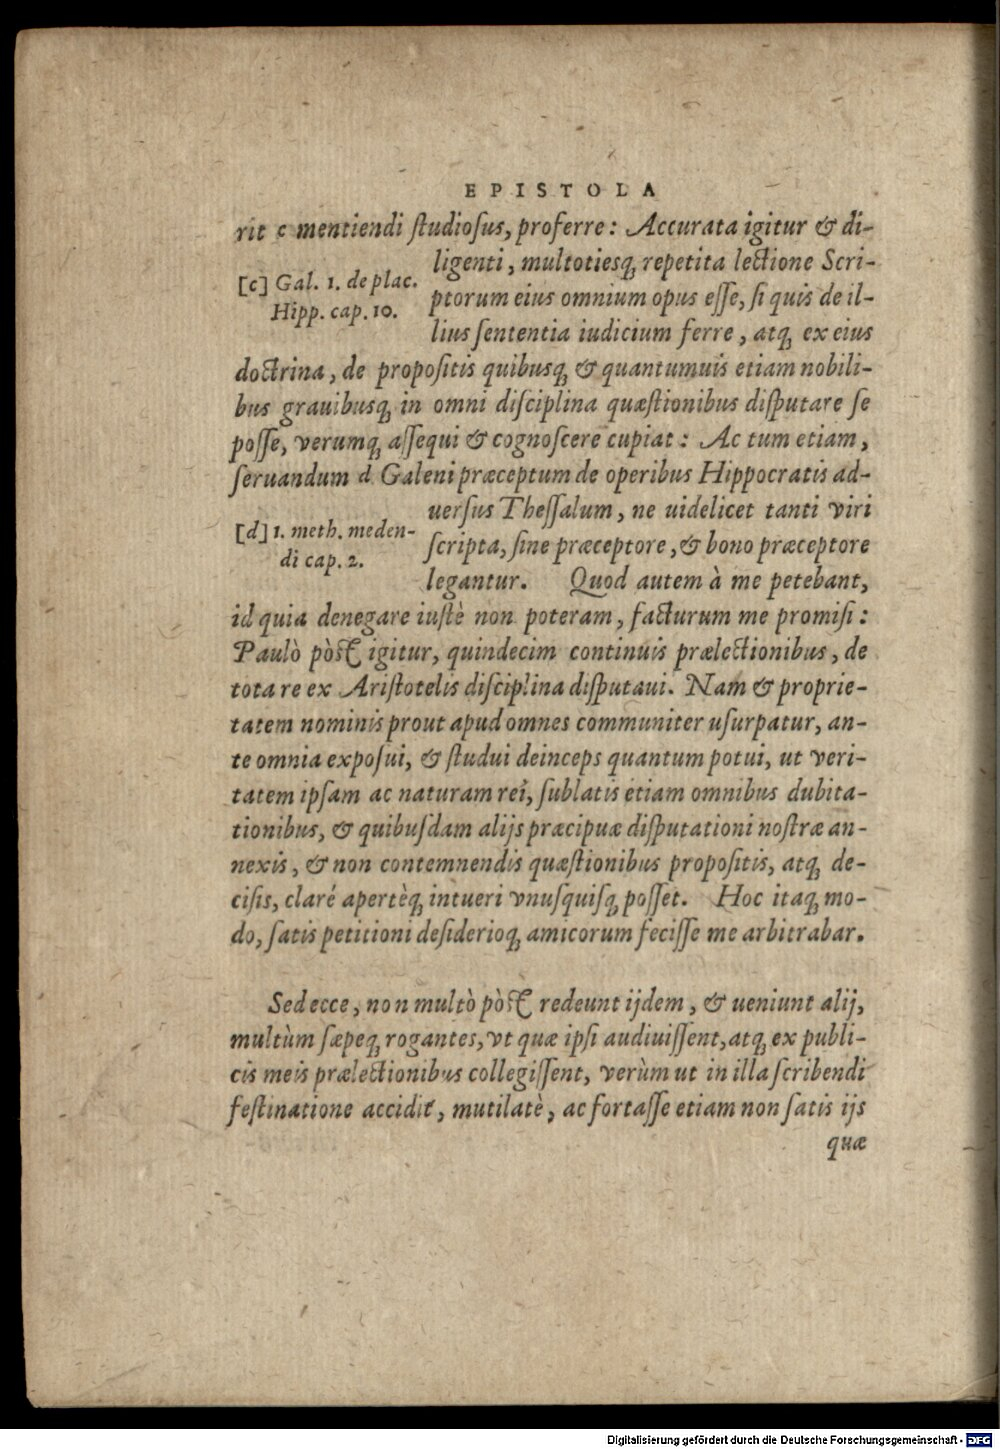 EPISTOLA
rit c mentiendi ſtudioſus, proferre: Accurata igitur & di-
ligenti, multotiesq; repetita lectione Scri-
[c] Gal. 1. de plac.
Hipp. cap. 10.
ptorum eius omnium opus eſſe, ſi quis de il-
lius ſententia iudicium ferre, atq; ex eius
doctrina, de propoſitis quibusq; & quantumuis etiam nobili-
bus grauibusq; in omni diſciplina quæſtionibus diſputare ſe
poſſe, verumq; aſſequi & cognoſcere cupiat: Ac tum etiam,
ſeruandum d Galeni præceptum de operibus Hippocratis ad-
uerſus Theſſalum, ne uidelicet tanti viri
[d] 1. meth. meden-
di cap. 2.
ſcripta, ſine præceptore, & bono præceptore
legantur. Quod autem à me petebant,
id quia denegare iuſtè non poteram, facturum me promiſi:
Paulò pòſt igitur, quindecim continuis prælectionibus, de
tota re ex Ariſtotelis diſciplina diſputaui. Nam & proprie-
tatem nominis prout apud omnes communiter uſurpatur, an-
te omnia expoſui, & ſtudui deinceps quantum potui, ut veri-
tatem ipſam ac naturam rei, ſublatis etiam omnibus dubita-
tionibus, & quibuſdam alijs præcipuæ diſputationi noſtræ an-
nexis, & non contemnendis quæſtionibus propoſitis, atq; de-
ciſis, claré apertèq; intueri vnuſquiſq; poſſet. Hoc itaq; mo-
do, ſatis petitioni deſiderioq; amicorum feciſſe me arbitrabar.
Sed ecce, non multò pòſt redeunt ijdem, & ueniunt alij,
multùm ſæpeq; rogantes, vt quæ ipſi audiuiſſent, atq; ex publi-
cis meis prælectionibus collegiſſent, verùm ut in illa ſcribendi
feſtinatione accidit, mutilatè, ac fortaſſe etiam non ſatis ijs
quæ
Digitalisierung gefördert durch die Deutsche Forschungsgemeinschaft - DFG